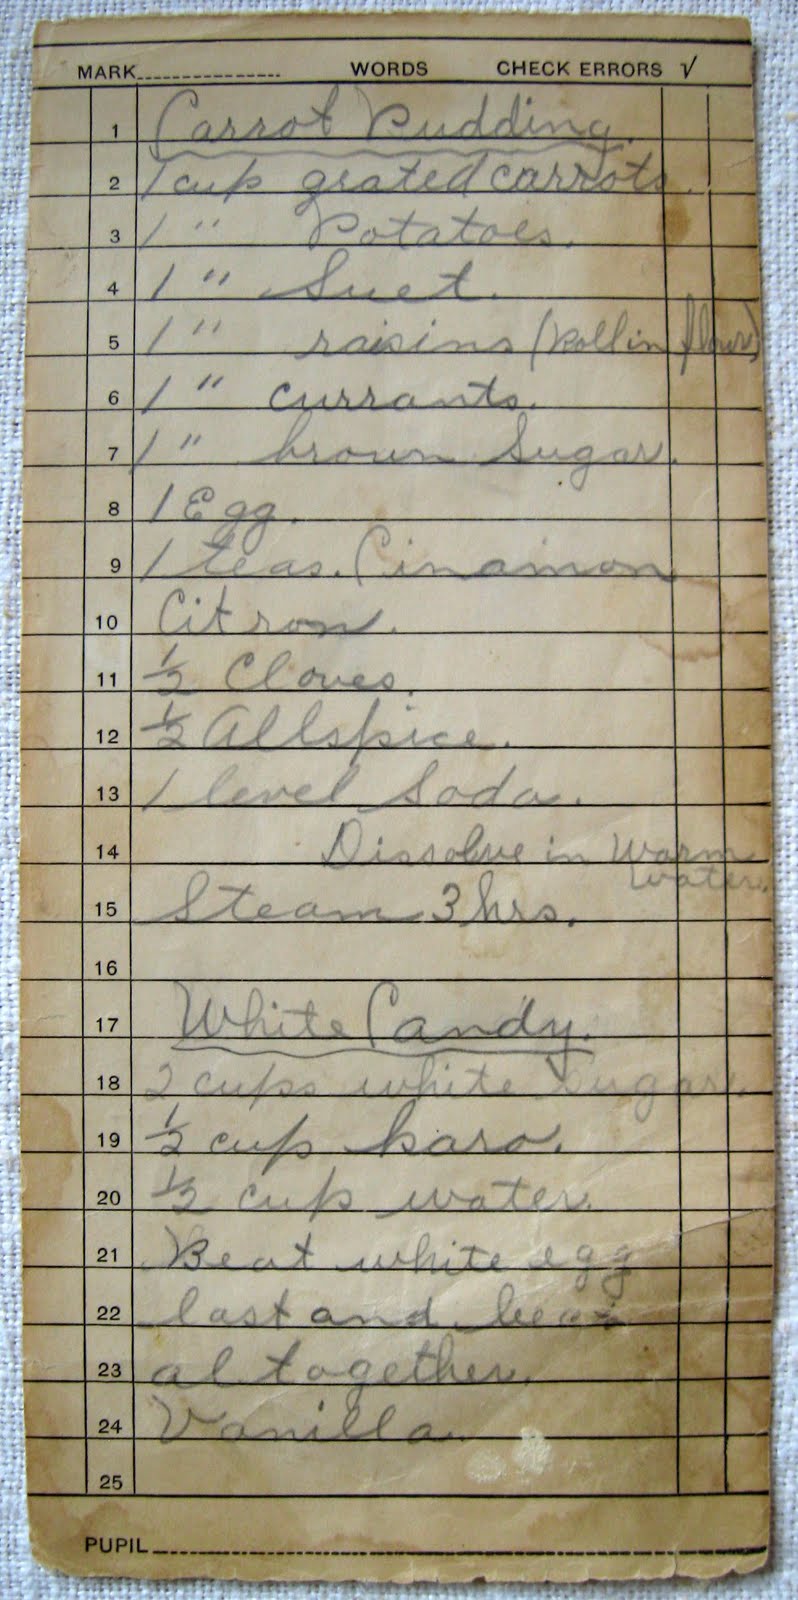 MARK WORDS CHECK ERRORS √
1 Carrot Pudding.
2 1 cup grated carrots.
3 1 " Potatoes.
4 1 " Suet.
5 1 " raisins (Roll in flour)
6 1 " currants.
7 1 " brown Sugar.
8 1 Egg.
9 1 teas. Cinamon
10 Citron.
11 ½ Cloves.
12 ½ Allspice.
13 1 level Soda.
14 Dissolve in Warm
water.
15 Steam 3 hrs.
16
17 White Candy.
18 2 cups white sugar.
19 ½ cup karo.
20 ½ cup water.
21 Beat white egg
22 last and beat
23 altogether.
24 Vanilla.
25
PUPIL